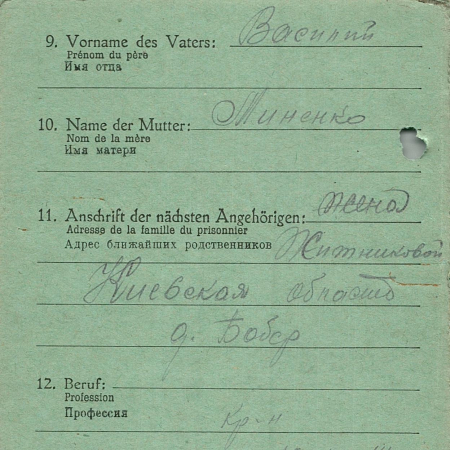 9. Vorname des Vaters: Василий
Prénom du père
Имя отца
10. Name der Mutter: Миненко
Nom de la mère
Имя матери
11. Anschrift der nächsten Angehörigen: жена
Adresse de la famille du prisonnier
Адрес ближайших родственников Житниковой
Киевская область
д. Бобер
12. Beruf:
Profession
Профессия
кр-н